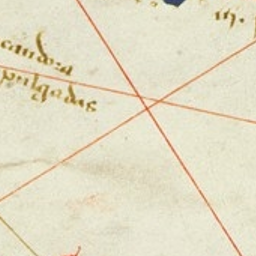 candoza
pulgadas
m.